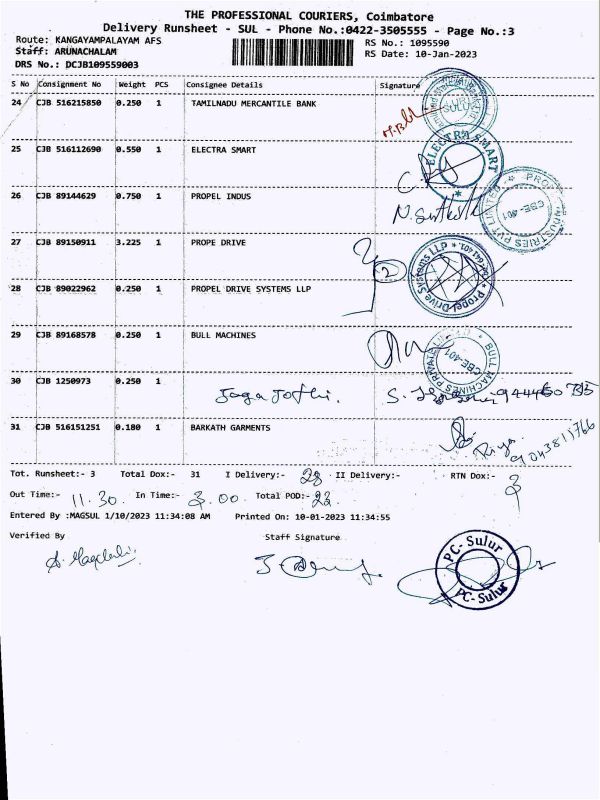 THE PROFESSIONAL COURIERS, Coimbatore
Delivery Runsheet - SUL - Phone No.:0422-3505555 - Page No.:3
Route: KANGAYAMPALAYAM AFS RS No.: 1095590
Staff: ARUNACHALAM RS Date: 10-Jan-2023
DRS No.: DCJB109559003
S No Consignment No Weight PCS Consignee Details Signature
24 CJB 516215850 0.250 1 TAMILNADU MERCANTILE BANK
SULUR
25 CJB 516112690 0.550 1 ELECTRA SMART
ELECTRA SMART
26 CJB 89144629 0.750 1 PROPEL INDUS
INDUSTRIES PVT LIMITED * PROPEL
CBE-401
27 CJB 89150911 3.225 1 PROPE DRIVE
2
Propel Drive Systems LLP * CBE-641 401. *
28 CJB 89022962 0.250 1 PROPEL DRIVE SYSTEMS LLP
29 CJB 89168578 0.250 1 BULL MACHINES
BULL MACHINES PRIVATE LIMITED
CBE-401
30 CJB 1250973 0.250 1 Joga Jothi.
31 CJB 516151251 0.180 1 BARKATH GARMENTS
9043811766
Tot. Runsheet:- 3 Total Dox:- 31 I Delivery:- 28 II Delivery:- RTN Dox:- 3
Out Time:- 11.30 In Time:- 3.00 Total POD:- 22
Entered By :MAGSUL 1/10/2023 11:34:08 AM Printed On: 10-01-2023 11:34:55
Verified By Staff Signature
PC-Sulur
PC-Sulur